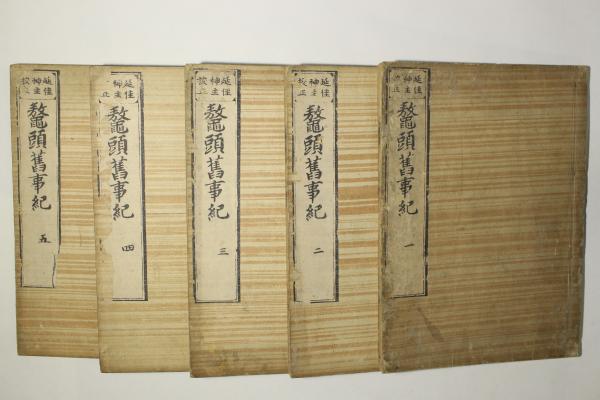 延佳
神主
校正
鼇頭舊事紀 一
延佳
神主
校正
鼇頭舊事紀 二
延佳
神主
校正
鼇頭舊事紀 三
延佳
神主
正
鼇頭舊事紀 四
延佳
神主
校正
鼇頭舊事紀 五